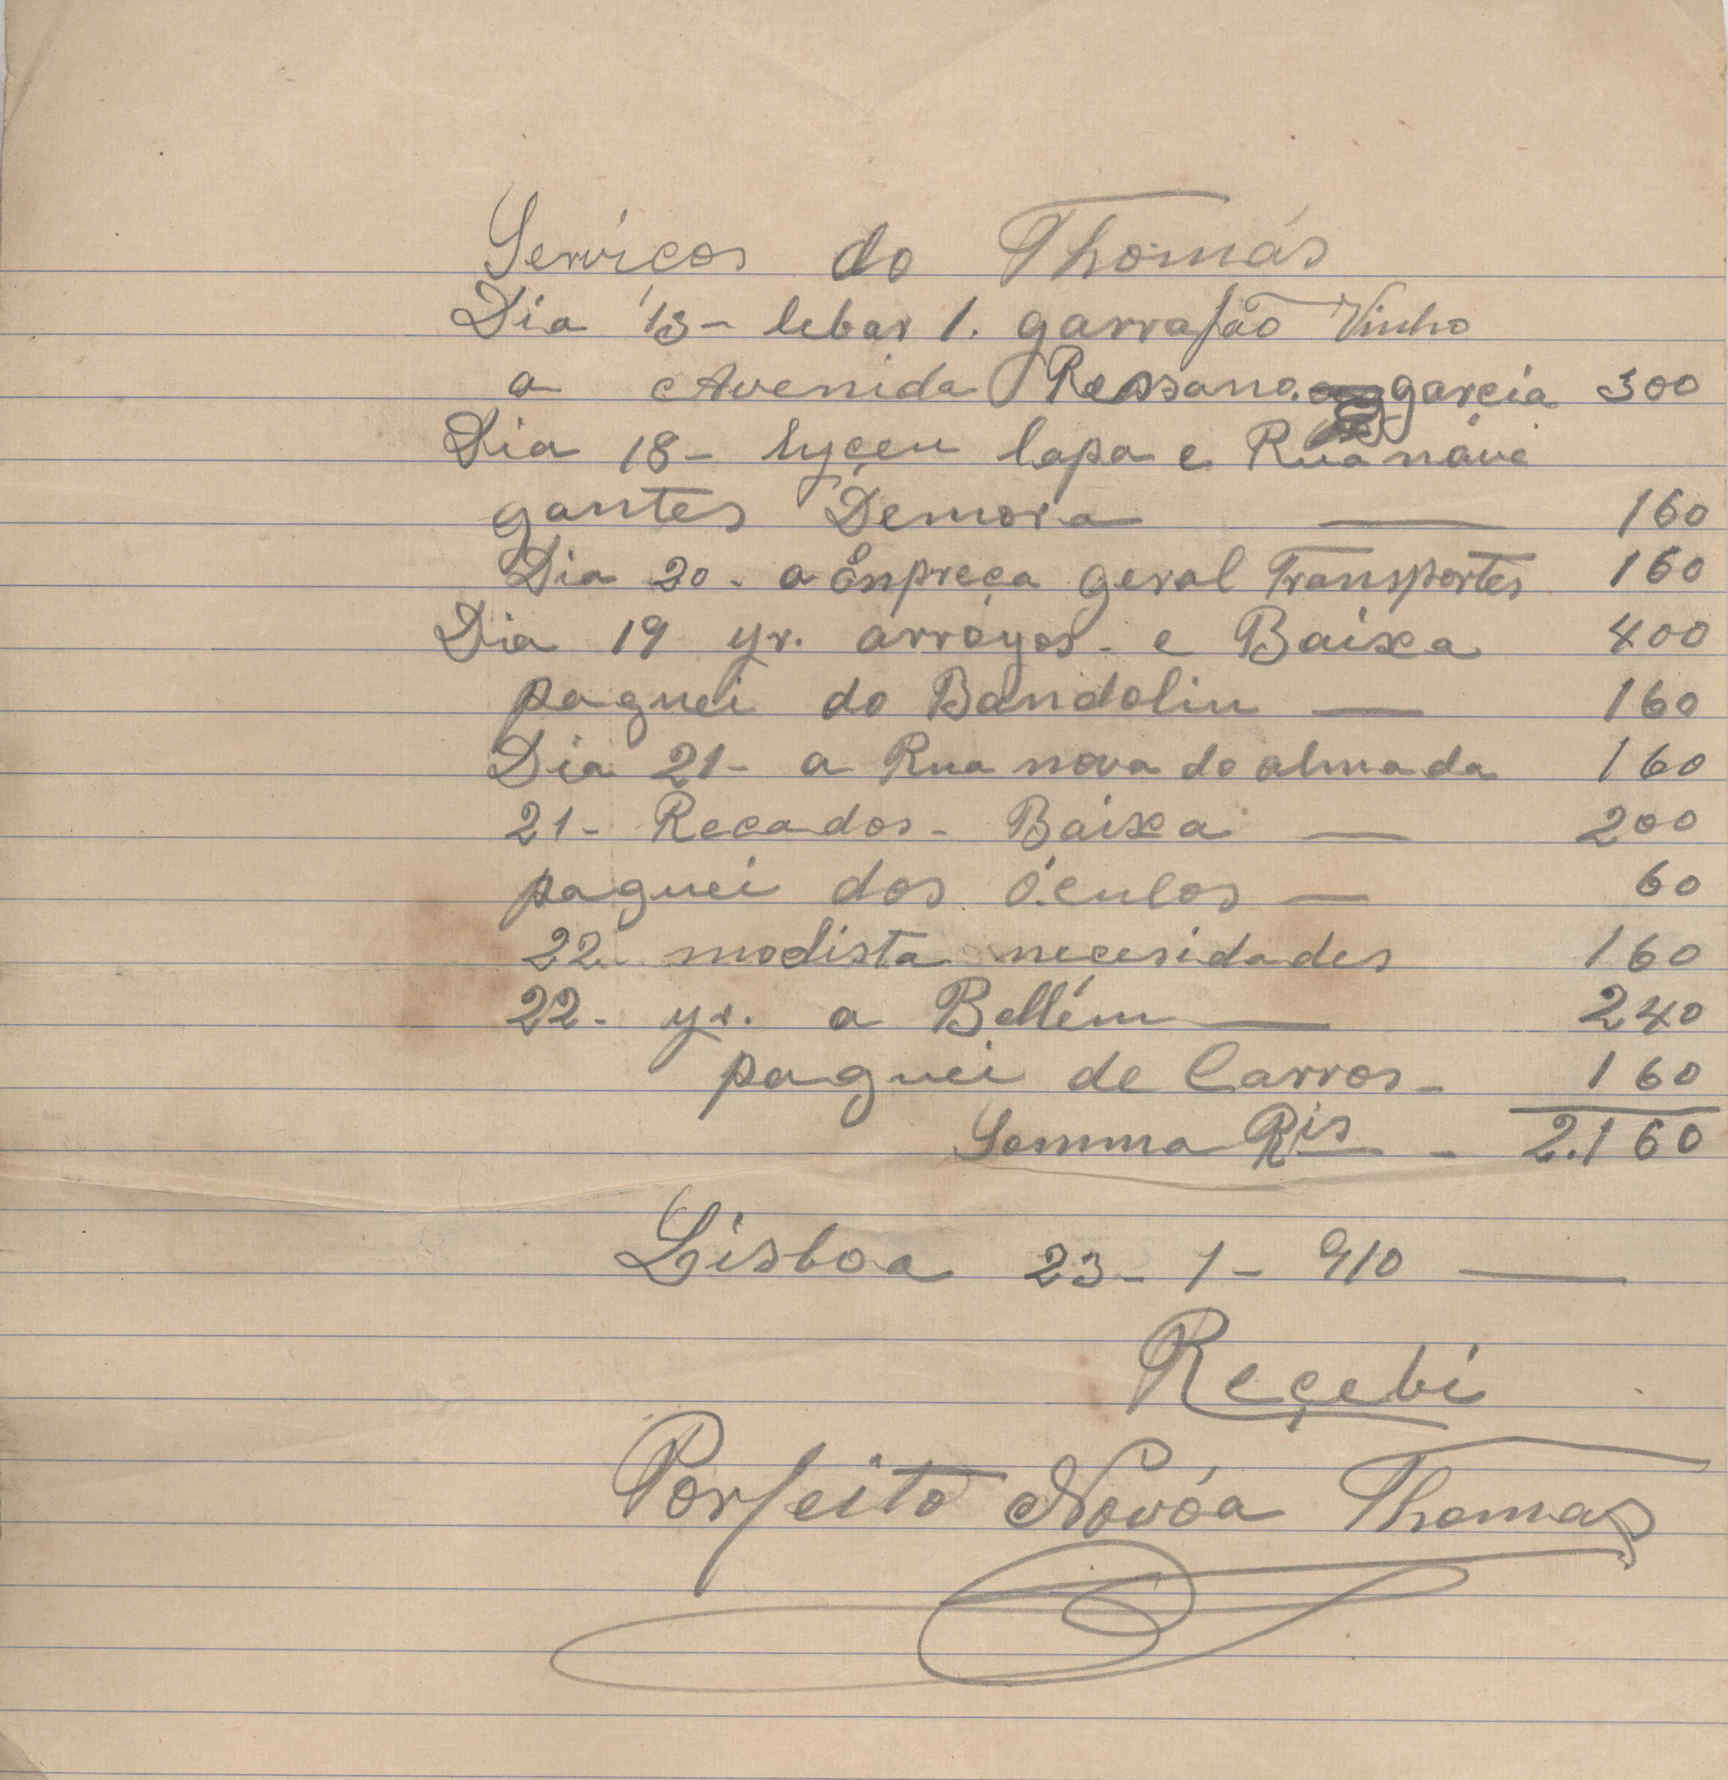 Serviços do Thomás
Dia 13- lebar 1. garrafão Vinho
a Avenida Ressano. garcia 300
Dia 18- lyçeu lapa e Rua náve
gantes Demora — 160
Dia 20- a Enpreça geral Transportes 160
Dia 19 yr. arroyos- e Baixa 400
paguei do Bandolin — 160
Dia 21- a Rua nova do almada 160
21- Recados- Baixa — 200
paguei dos óculos — 60
22- modista necesidades 160
22- yr. a Bellém — 240
paguei de Carros- 160
Somma Ris - 2.160
Lisboa 23-1-910 —
Reçebi
Porfeito Novóa Thomas